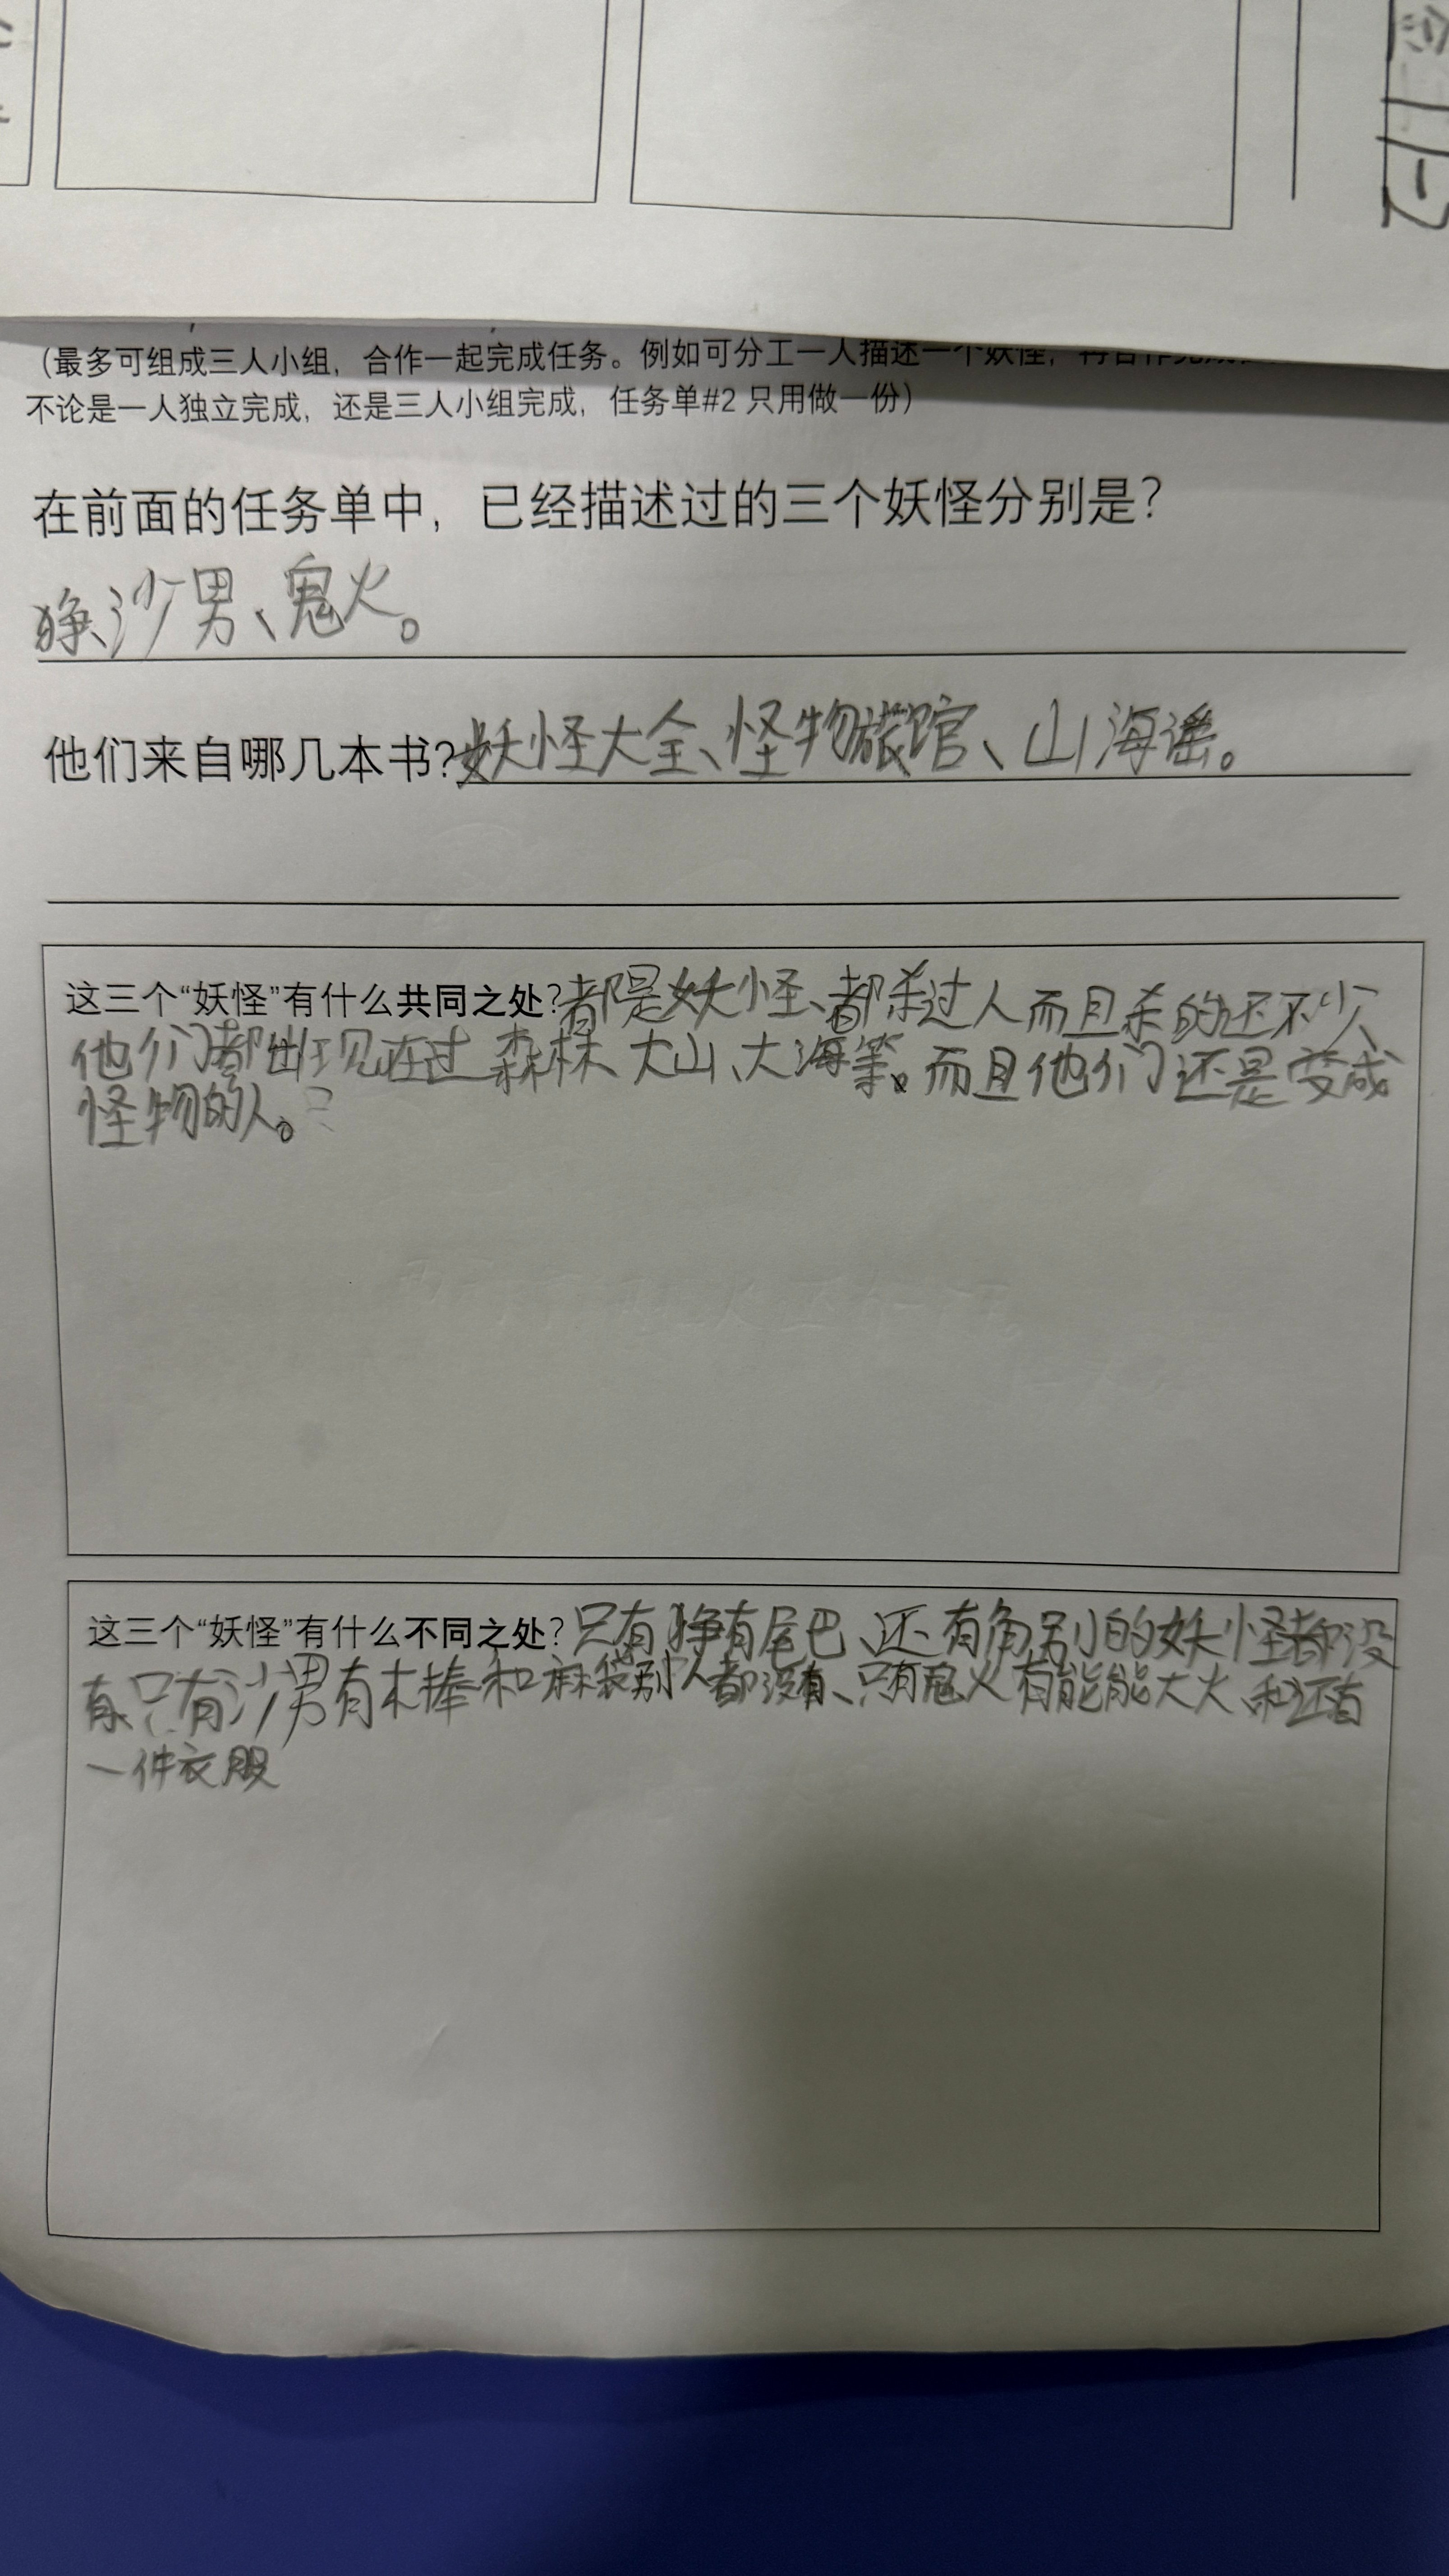 (最多可组成三人小组，合作一起完成任务。例如可分工一人描述一个妖怪，再合作完成
不论是一人独立完成，还是三人小组完成，任务单#2 只用做一份)
在前面的任务单中，已经描述过的三个妖怪分别是?
狰、沙男、鬼火。
他们来自哪几本书?妖怪大全、怪物旅馆、山海谣。
这三个“妖怪”有什么共同之处?都是妖怪、都杀过人而且杀的还不少、
他们都出现在过森林、大山、大海等。而且他们还是变成
怪物的人。
这三个“妖怪”有什么不同之处?只有狰有尾巴、还有角别的妖怪都没
有、只有沙男有木棒和麻袋别人都没有、只有鬼火有能能大火、和还有
一件衣服